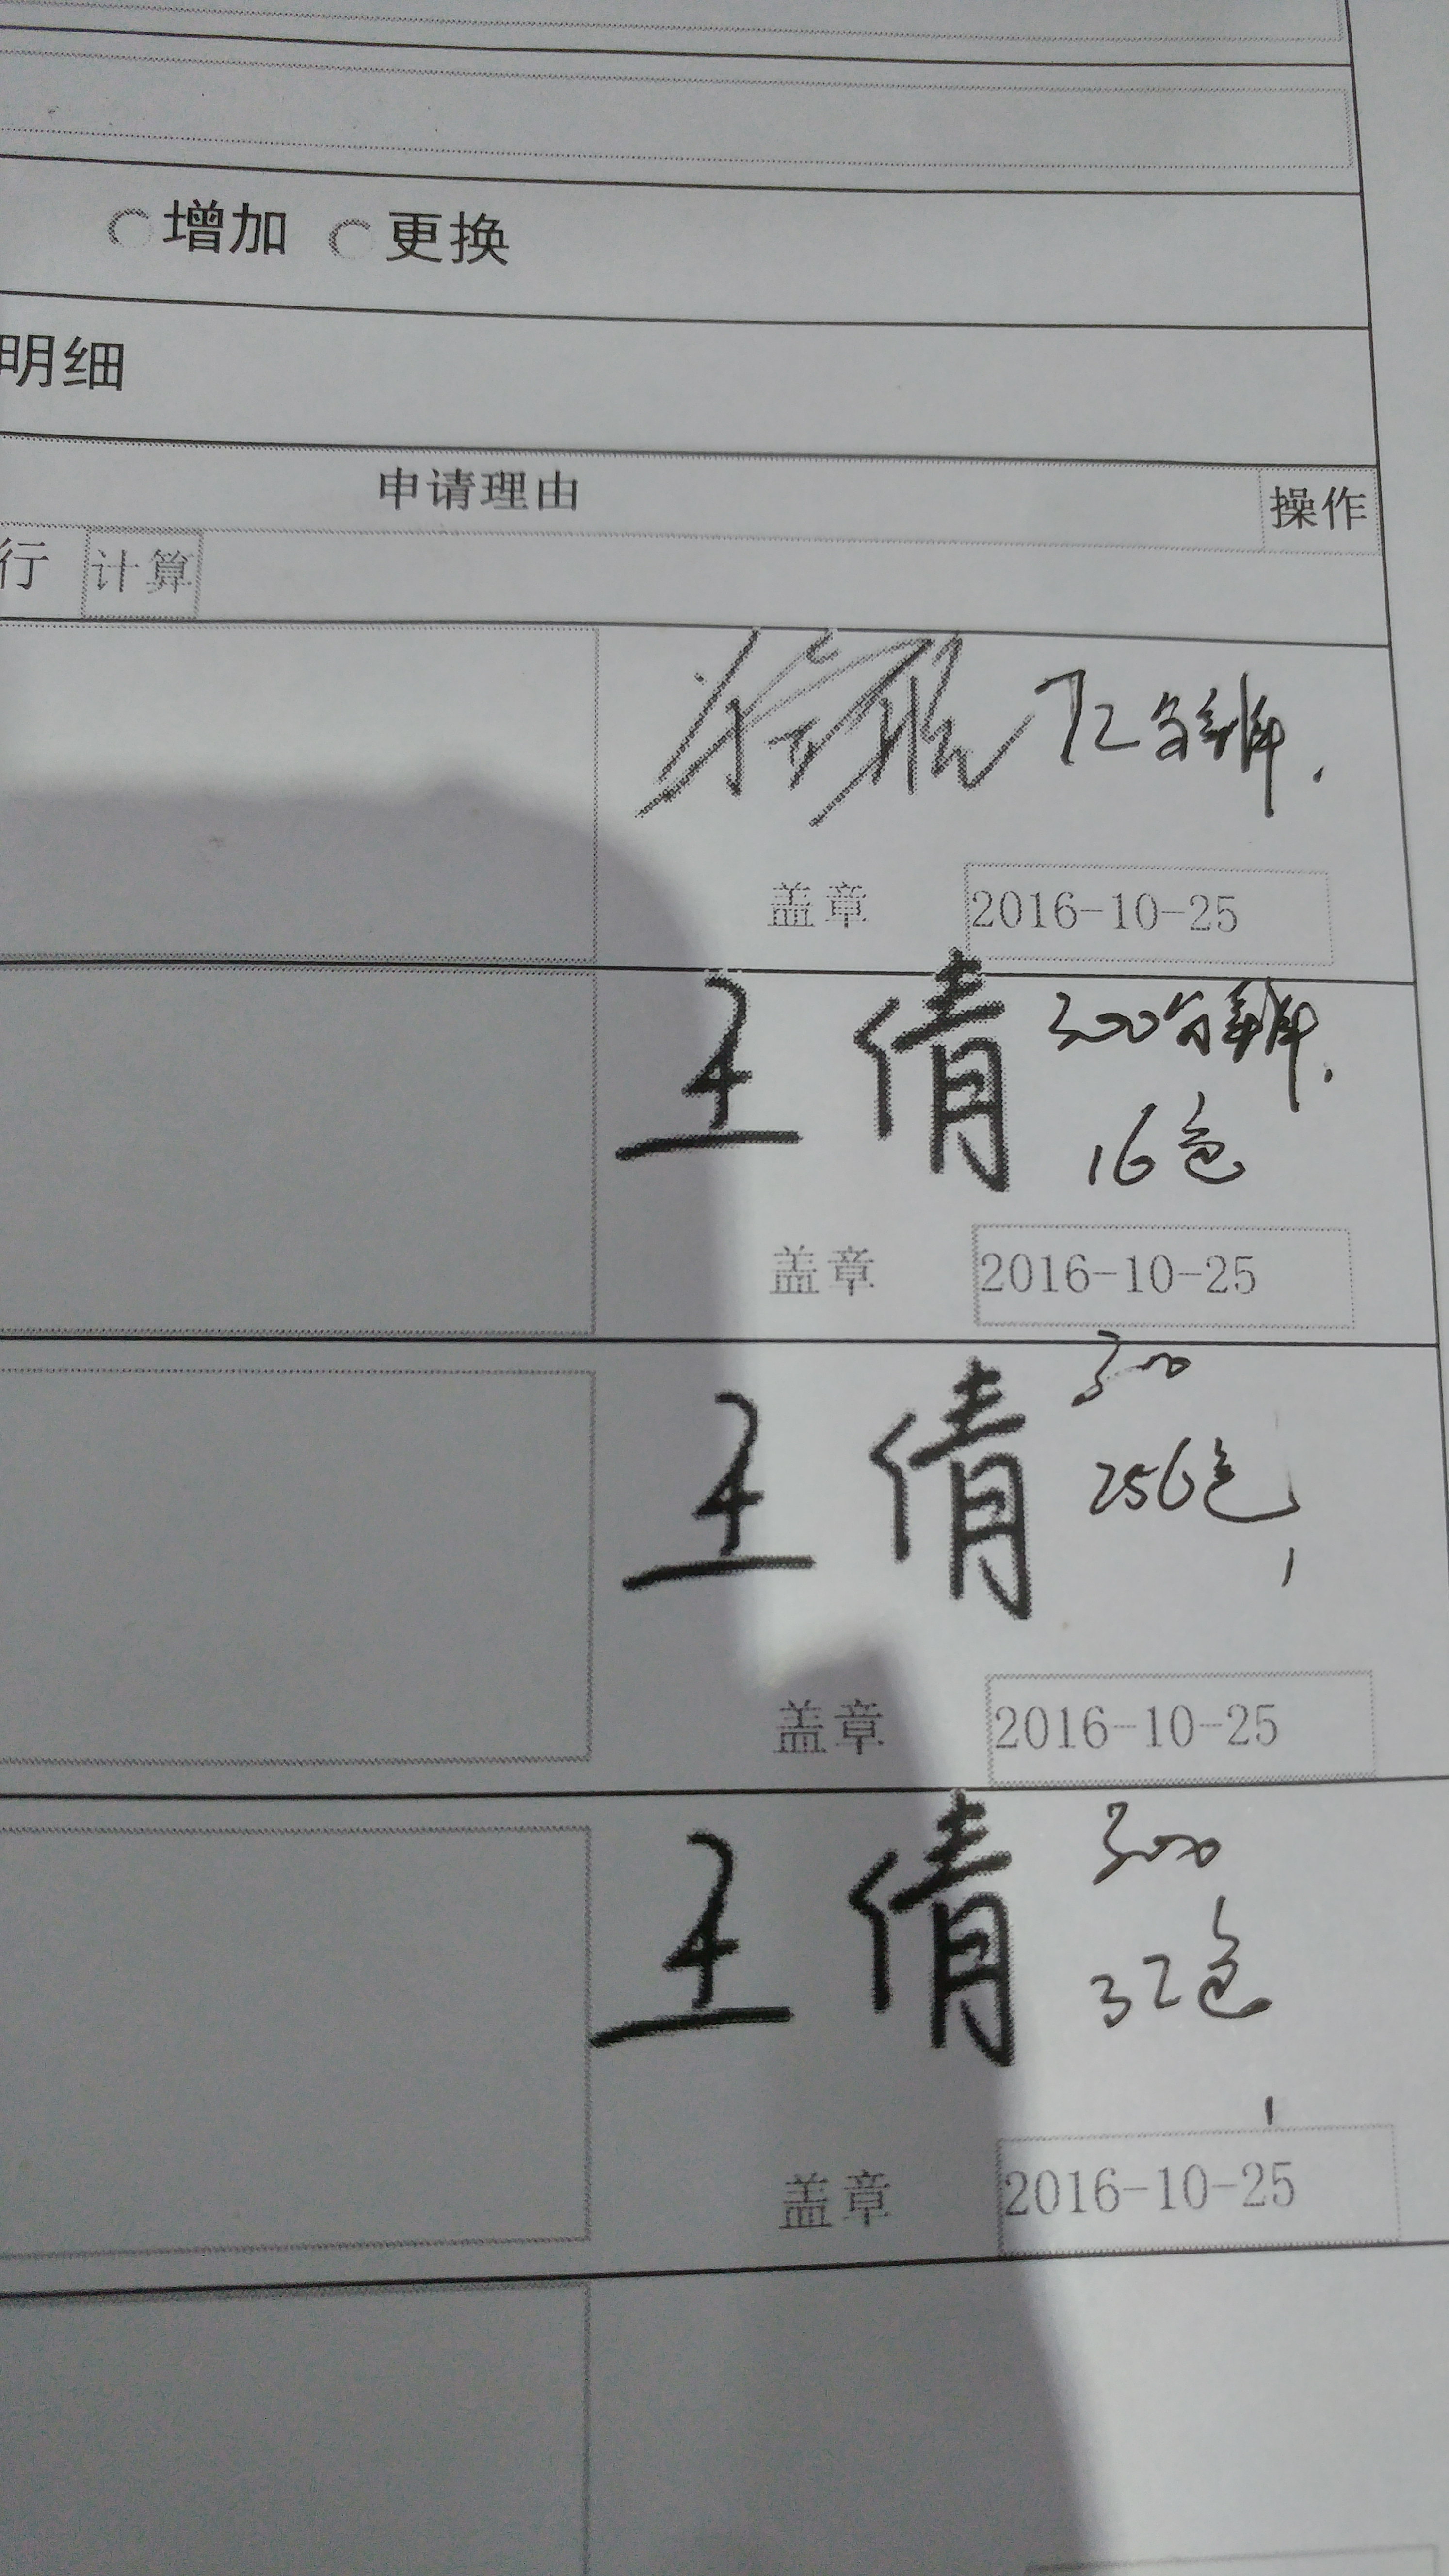 增加 更换
明细
申请理由 操作
行 计算
72分辨.
盖章 2016-10-25
王倩 300分辨.
16色
盖章 2016-10-25
王倩 300
256色
盖章 2016-10-25
王倩 300
32色
盖章 2016-10-25